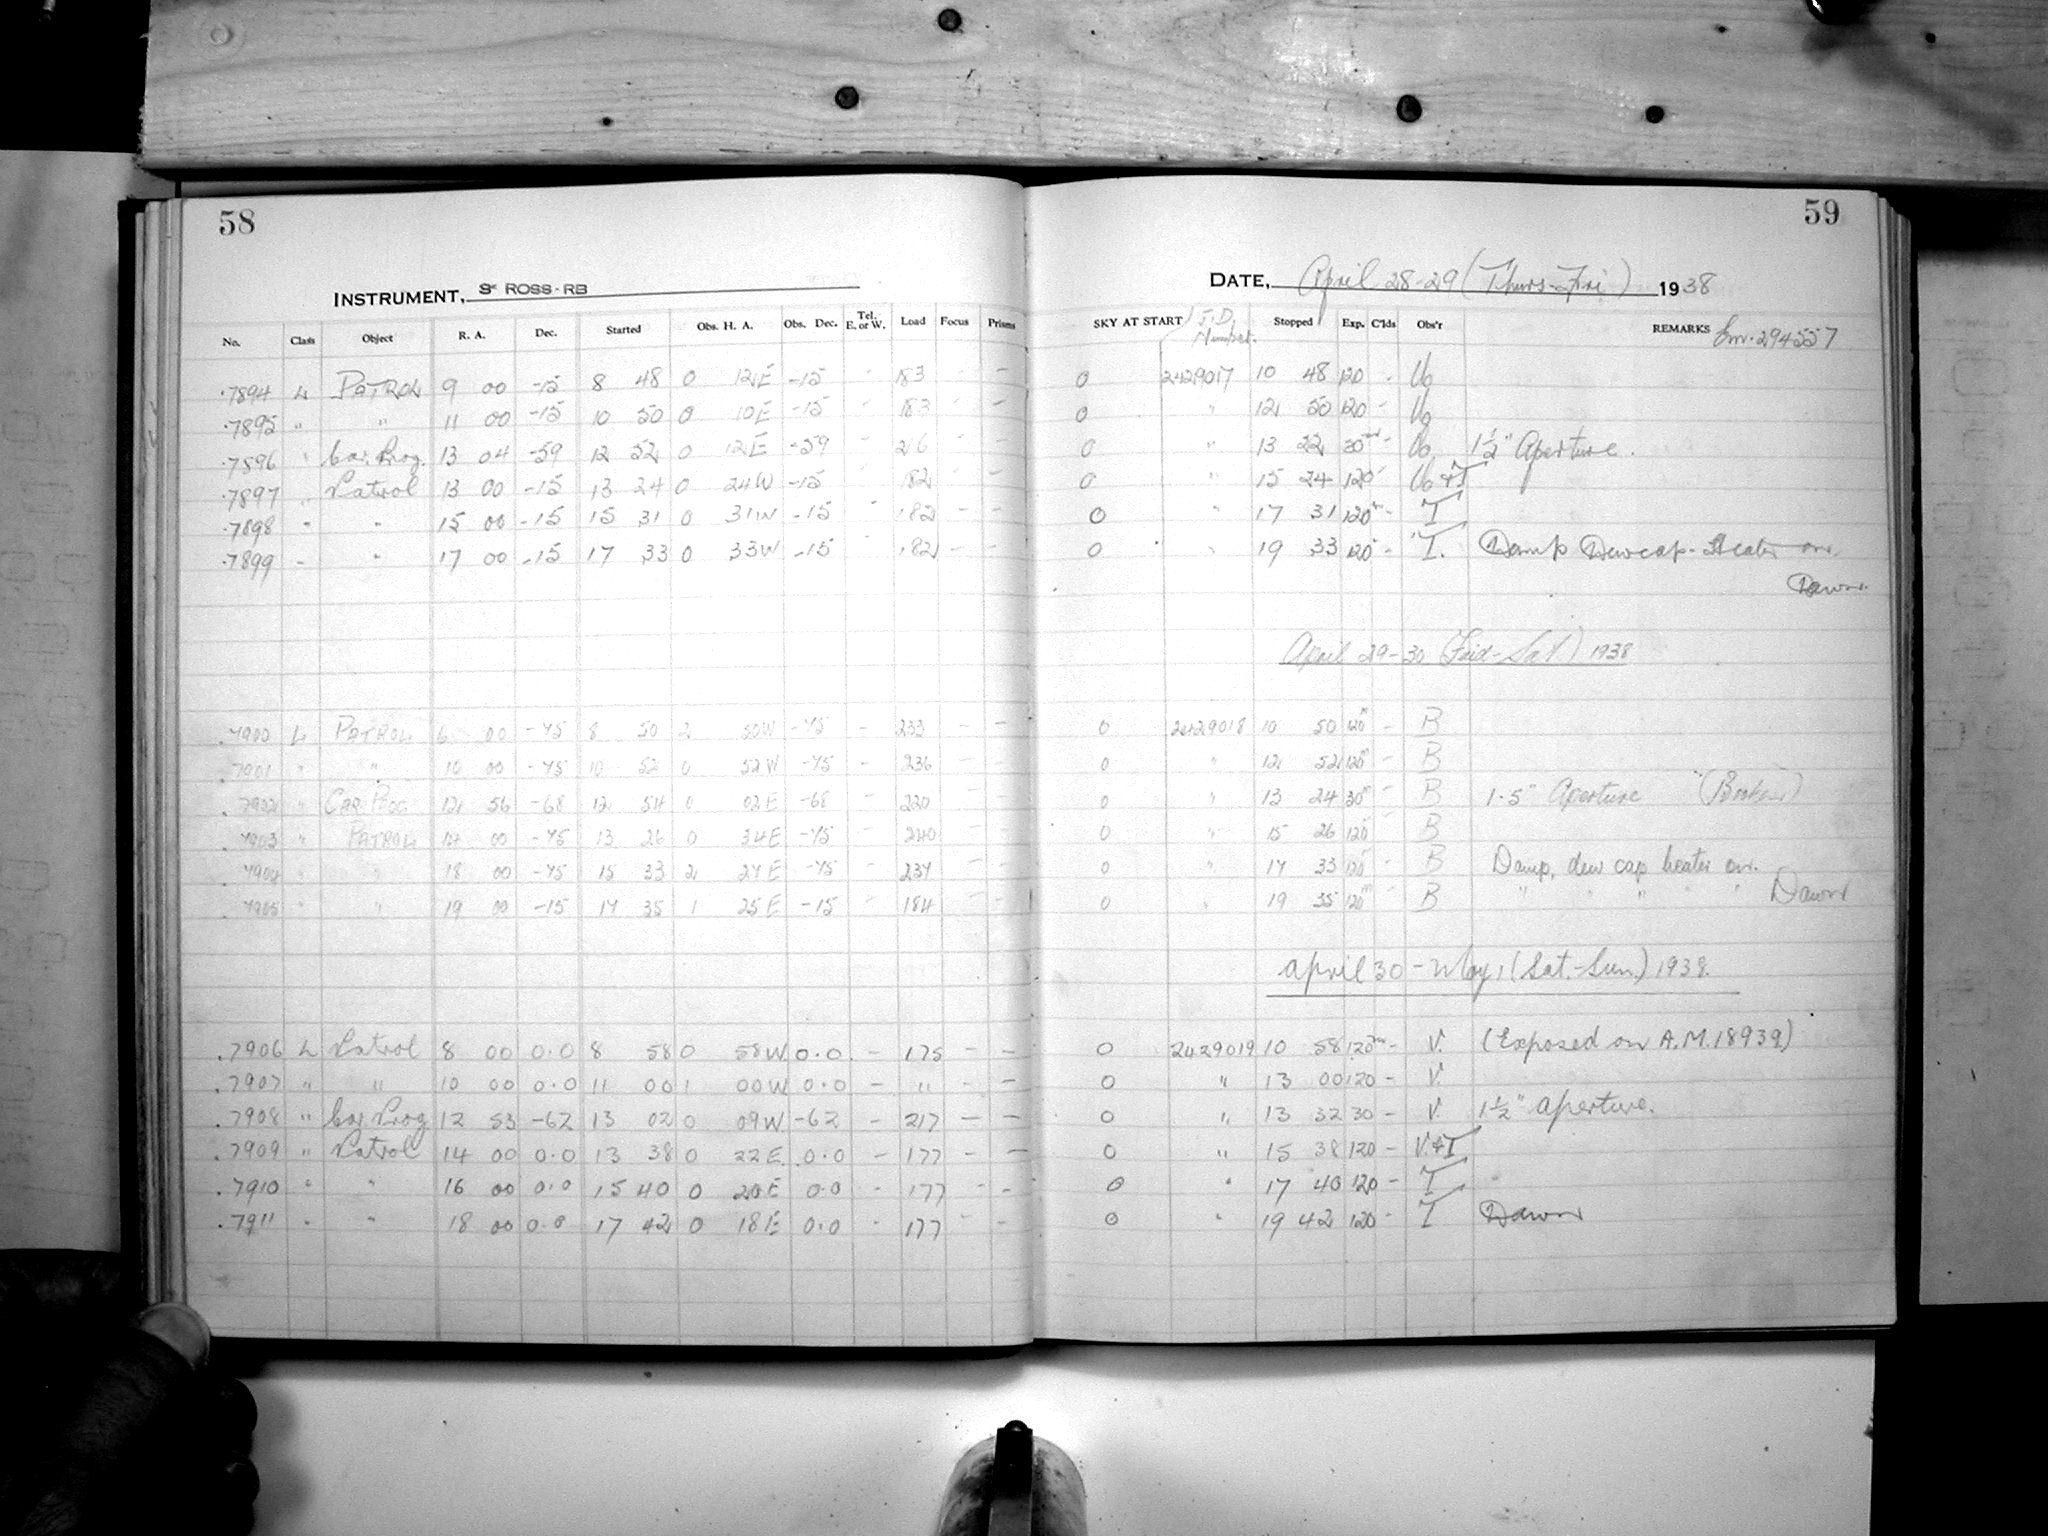 58
INSTRUMENT, ROSS-RB
No. Class Object R. A. Dec. Started Obs. H. A. Obs. Dec. Tel. E. or W. Load Focus Prisms
.7894 L PATROL 9 00 -15 8 48 0 12E -15 - 183 - -
.7895 " " 11 00 -15 10 50 0 10E -15 - 183 - -
.7896 " Car. Prog. 13 04 -59 12 52 0 12E -59 - 216 - -
.7897 " Patrol 13 00 -15 13 24 0 24W -15 - 182 - -
.7898 " " 15 00 -15 15 31 0 31W -15 - 182 - -
.7899 - " 17 00 -15 17 33 0 33W -15 - 182 - -
.7900 L PATROL 6 00 -75 8 50 2 50W -75 - 233 - -
.7901 " " 10 00 -75 10 52 0 52W -75 - 236 - -
.7902 " CAR PROG 12 56 -68 12 54 0 02E -68 - 230 - -
.7903 " PATROL 14 00 -75 13 26 0 34E -75 - 240 - -
.7904 " " 18 00 -75 15 33 2 27E -75 - 237 - -
.7905 " " 19 00 -15 17 35 1 25E -15 - 184 - -
.7906 L Patrol 8 00 0.0 8 58 0 58W 0.0 - 175 - -
.7907 " " 10 00 0.0 11 00 1 00W 0.0 - " - -
.7908 " Car Prog 12 53 -62 13 02 0 09W -62 - 217 - -
.7909 " Patrol 14 00 0.0 13 38 0 22E 0.0 - 177 - -
.7910 " " 16 00 0.0 15 40 0 20E 0.0 - 177 - -
.7911 " " 18 00 0.0 17 42 0 18E 0.0 - 177 - -
59
DATE, April 28-29 (Thurs-Fri) 1938
SKY AT START J.D. Number. Stopped Exp. C'lds Obs'r REMARKS 294557
0 2429017 10 48 120 -
0 " 12 50 120 -
0 " 13 22 30 - 1½" Aperture.
0 " 15 24 120 -
0 " 17 31 120m - T
0 " 19 33 120 - T. Damp Dewcap-Heater on.
Dawn.
April 29-30 (Frid-Sat) 1938
0 2429018 10 50 120m - B
0 " 12 52 120m - B
0 " 13 24 30m - B 1.5" Aperture
0 " 15 26 120 - B
0 " 17 33 120 - B Damp, dew cap heater on.
0 " 19 35 120m - B " " " " " Dawn
April 30-May 1 (Sat.-Sun.) 1938.
0 2429019 10 58 120m - V. (Exposed on A.M. 18939)
0 " 13 00 120 - V.
0 " 13 32 30 - V. 1½" aperture.
0 " 15 38 120 - V.&T
0 " 17 40 120 - T
0 " 19 42 120 - T Dawn